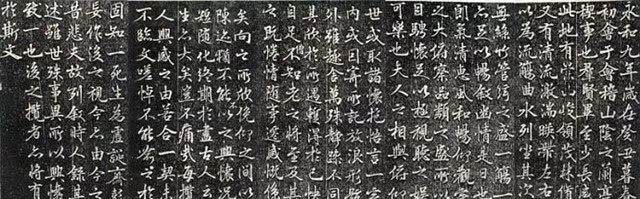 永和九年歲在癸丑暮春
初會于會稽山陰之蘭亭
禊事也羣賢畢至少長咸
此地有崇山峻領茂林脩
又有清流激湍暎帶左右
以為流觴曲水列坐其次
無絲竹管弦之盛一觴一
亦足以暢敘幽情是日也
朗氣清惠風和暢仰觀宇
之大俯察品類之盛所以
目騁懷足以極視聽之娛
可樂也夫人之相與俯仰
世或取諸懷抱悟言一室
內或因寄所託放浪形骸
外雖趣舍萬殊靜躁不同
其欣於所遇暫得於己快
自足不知老之將至及其
之既惓情隨事遷感慨係
矣向之所欣俛仰之間以
陳迹猶不能不以之興懷況
短隨化終期於盡古人云
生亦大矣豈不痛哉每攬
人興感之由若合一契未
不臨文嗟悼不能喻之於
固知一死生為虛誕齊彭
妄作後之視今亦由今之
昔悲夫故列敘時人錄其
述雖世殊事異所以興懷
致一也後之攬者亦將有
於斯文